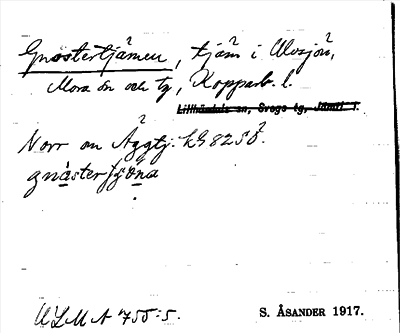 Gnostertjämen, tjäm i Alvsjön,
Mora sn och tg, Kopparb. l.
Lillhärdals sn, Svegs tg, Jämtl l.
Norr om Äggtj. k
gnåster
ULMA 755:5.
S. ÅSANDER 1917.